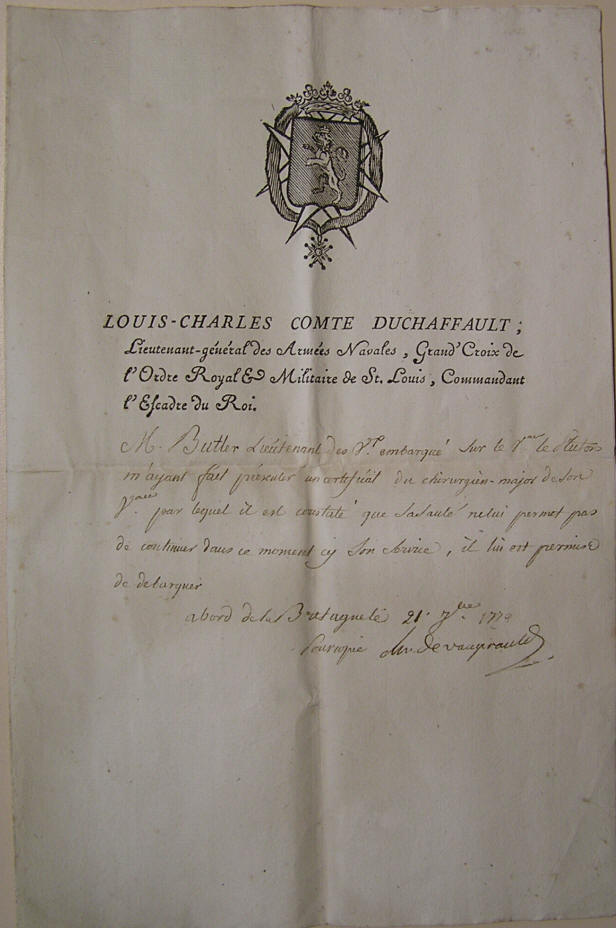 LOUIS-CHARLES COMTE DUCHAFFAULT ;
Lieutenant-général des Armées Navales, Grand'Croix de
l'Ordre Royal & Militaire de St. Louis, Commandant
l'Escadre du Roi.
M. Butler Lieutenant des V.x embarqué sur le V.au le Pluton
m'ayant fait présenter un certificat du chirurgien-major de son
V.au par lequel il est constaté que sa santé ne lui permet pas
de continuer dans ce moment cy son service, il lui est permis
de debarquer
abord de la Bretagne le 21 7bre 1779